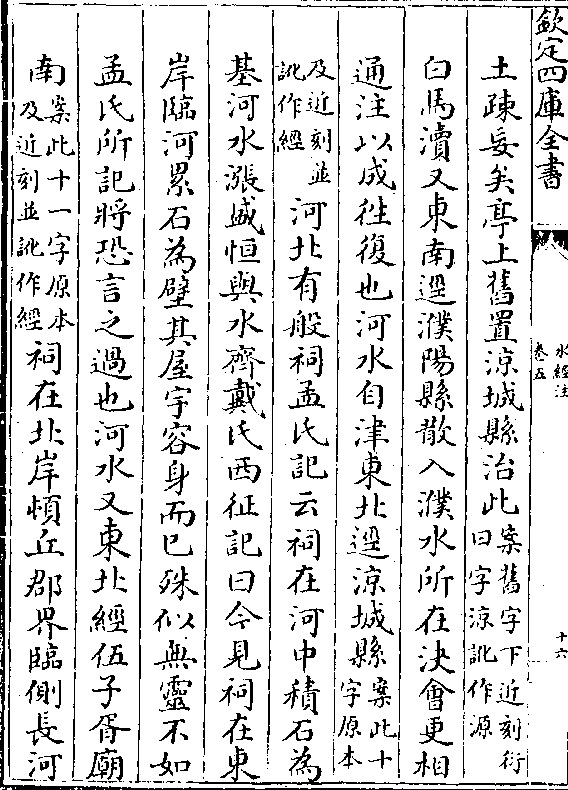 欽定四庫全書
水經注
卷五
十六
土疎妄矣亭上舊置涼城縣治此案舊字下近刻衍曰字涼訛作源
白馬瀆又東南逕濮陽縣散入濮水所在決會更相
通注以成往復也河水自津東北逕涼城縣案此十字原本
及近刻並訛作經河北有般祠孟氏記云祠在河中積石為
基河水漲盛恒與水齊戴氏西征記曰今見祠在東
岸臨河累石為壁其屋宇容身而已殊似無靈不如
孟氏所記將恐言之過也河水又東北經伍子胥廟
南案此十一字原本及近刻並訛作經祠在北岸頓丘郡界臨側長河